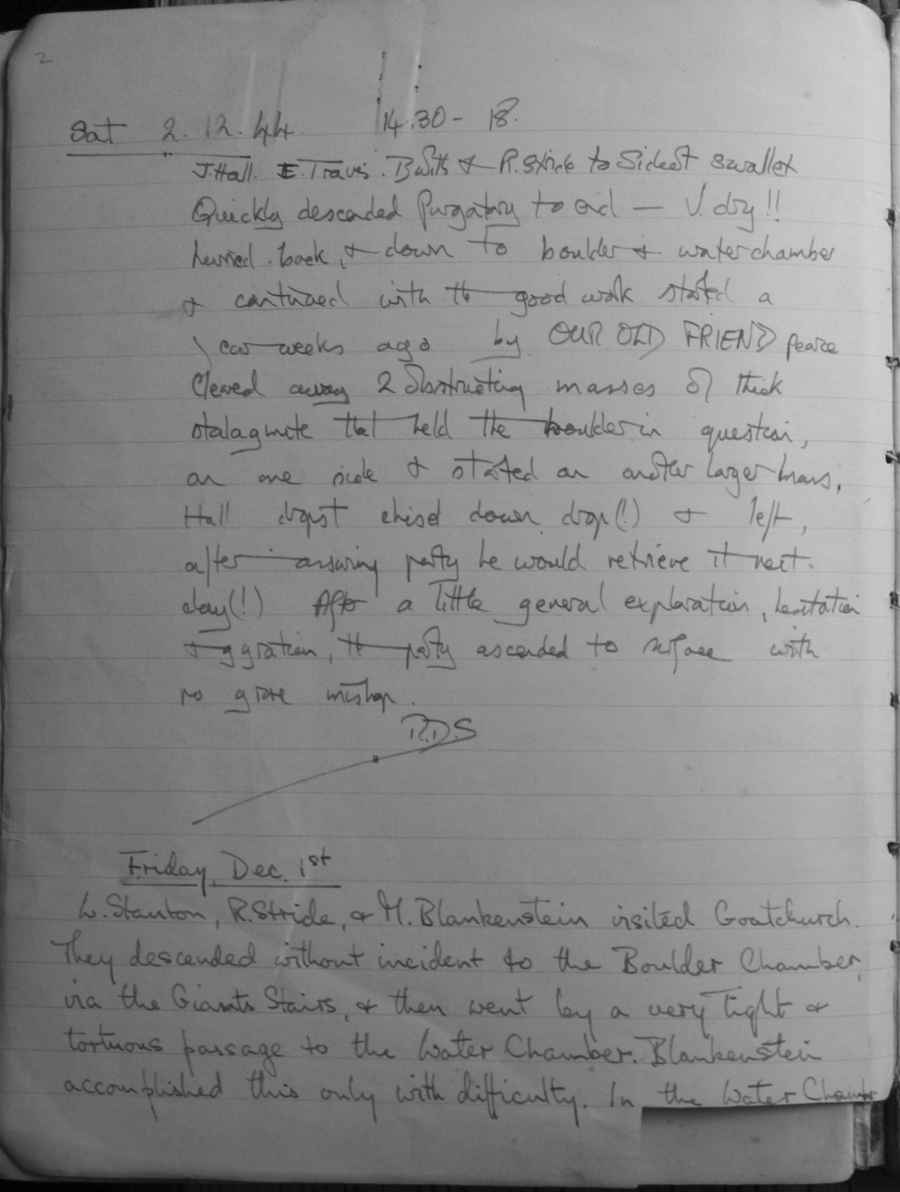 2
Sat 2.12.44 14.30 - 18.
J.Hall. E.Travis. & R.Stride to Sidcot Swallet
Quickly descended Purgatory to end — V. dry!!
hurried back, & down to boulder & water chamber
& continued with the good work started a
weeks ago by OUR OLD FRIEND Pearce
Cleared away 2 obstructing masses of thick
stalagmite that held the boulder in question,
on one side & started on another larger mass.
Hall dropt chisel down drop(!) & left,
after assuring party he would retrieve it next.
day(!) After a little general exploration,
the party ascended to surface with
no mishap.
R.D.S
Friday, Dec. 1st
L. Stanton, R.Stride, & M.Blankenstein visited Goatchurch.
They descended without incident to the Boulder Chamber,
via the Giants Stairs, & then went by a very tight &
tortuous passage to the Water Chamber. Blankenstein
accomplished this only with difficulty. In the Water Chamber